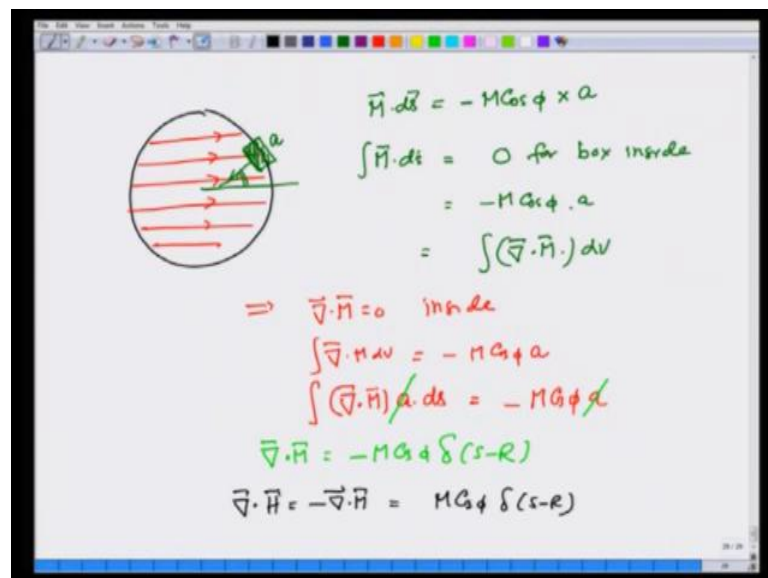 File Edit View Insert Actions Tools Help
a
M⃗·ds⃗ = - M Cos ϕ × a
∫M⃗·ds = 0 for box inside
= - M Cos ϕ . a
= ∫(∇⃗·M⃗.) dv
⇒ ∇⃗·M⃗ = 0 inside
∫∇⃗·M dv = - M Cos ϕ a
∫(∇⃗·M⃗) a. ds = - M Cos ϕ a
∇⃗·M⃗ = - M Cos ϕ δ(s-R)
∇⃗·H⃗ = -∇⃗·M⃗ = M Cos ϕ δ(s-R)